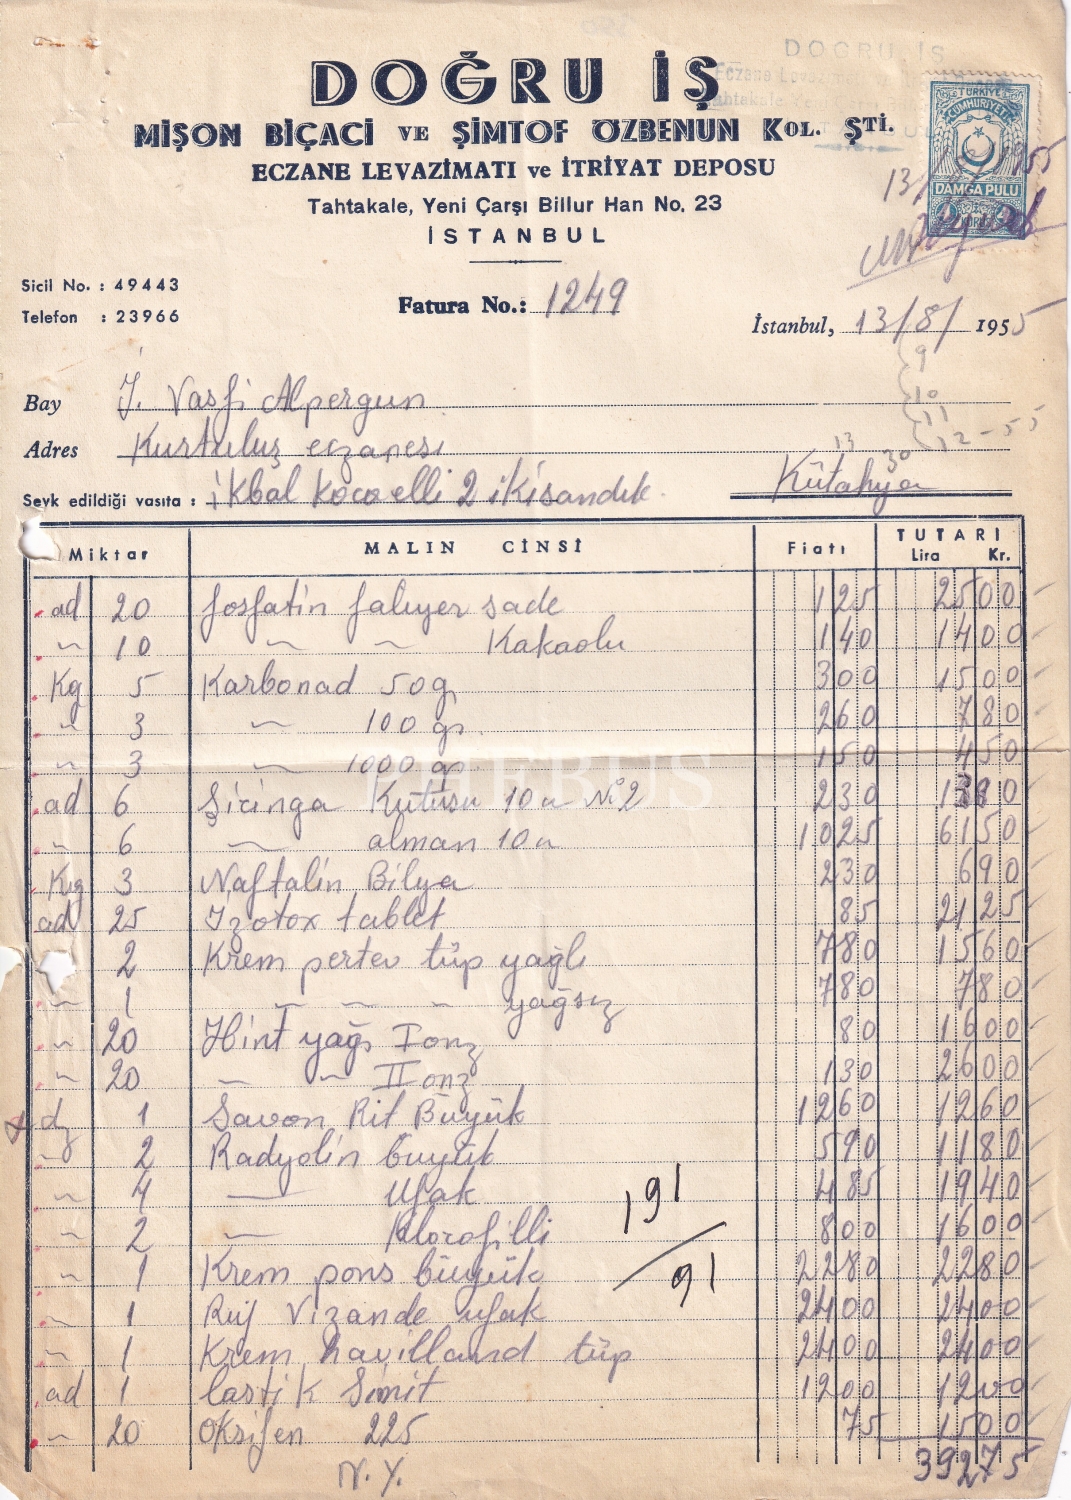 DOĞRU İŞ
DOĞRU İŞ
MİŞON BİÇACİ VE ŞİMTOF ÖZBENUN KOL. ŞTİ.
ECZANE LEVAZİMATI ve İTRİYAT DEPOSU
Tahtakale, Yeni Çarşı Billur Han No. 23
İSTANBUL
TÜRKİYE
CUMHURİYETİ
DAMGA PULU
Sicil No. : 49443
Telefon : 23966
Fatura No.: 1249
İstanbul, 13/8/1955
9
10
11
12-55
Bay İ. Vasfi Alpergun
Adres Kurtuluş eczanesi
Sevk edildiği vasıta : ikbal Kocaelli 2 iki sandık. Kütahya
Miktar MALIN CİNSİ Fiatı TUTARI
Lira Kr.
ad 20 fosfatin falıyer sade 125 2500
" 10 " " Kakaolu 140 1400
Kg 5 Karbonad 50 g 300 1500
" 3 " 100 gr. 260 780
" 3 " 1000 gr. 150 450
ad 6 Şiringa Kutusu 10 u No 2 230 1380
" 6 " alman 10 u 1025 6150
Kg 3 Naftalin Bilya 230 690
ad 25 İzotox tablet 85 2125
2 Krem pertev tüp yağlı 780 1560
" 1 " " " yağsız 780 780
" 20 Hint yağı I onz 80 1600
" 20 " " II onz 130 2600
dz 1 Savon Rit Büyük 1260 1260
" 2 Radyolin büyük 590 1180
" 4 " Ufak 485 1940
" 2 " Klorofilli 800 1600
" 1 Krem pons büyük 2280 2280
" 1 Ruj Vizande ufak 2400 2400
" 1 Krem havilland tüp 2400 2400
ad 1 lastik Simit 1200 1200
" 20 Okrifen 225 75 1500
191
91
39275
N.Y.
PHEBUS